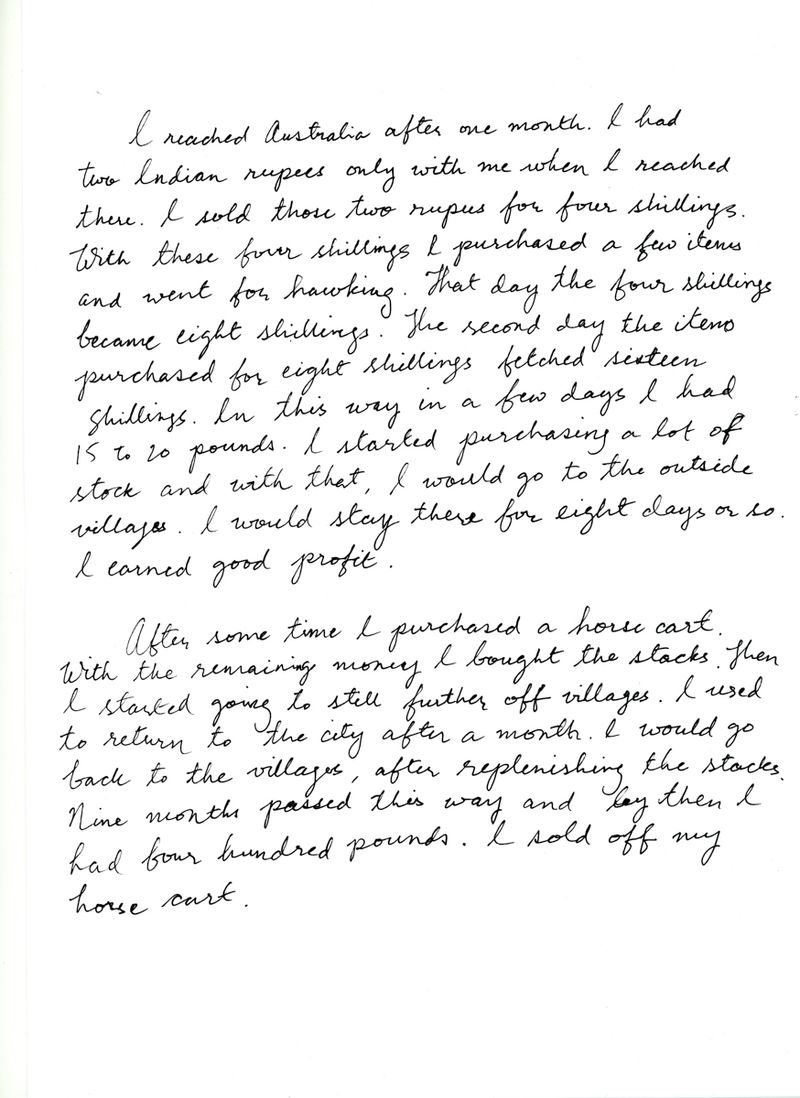 I reached Australia after one month. I had
two Indian rupees only with me when I reached
there. I sold those two rupees for four shillings.
With these four shillings I purchased a few items
and went for hawking. That day the four shillings
became eight shillings. The second day the items
purchased for eight shillings fetched sixteen
shillings. In this way in a few days I had
15 to 20 pounds. I started purchasing a lot of
stock and with that, I would go to the outside
villages. I would stay there for eight days or so.
I earned good profit.
After some time I purchased a horse cart.
With the remaining money I bought the stocks. Then
I started going to still further off villages. I used
to return to the city after a month. I would go
back to the villages, after replenishing the stocks.
Nine months passed this way and by then I
had four hundred pounds. I sold off my
horse cart.